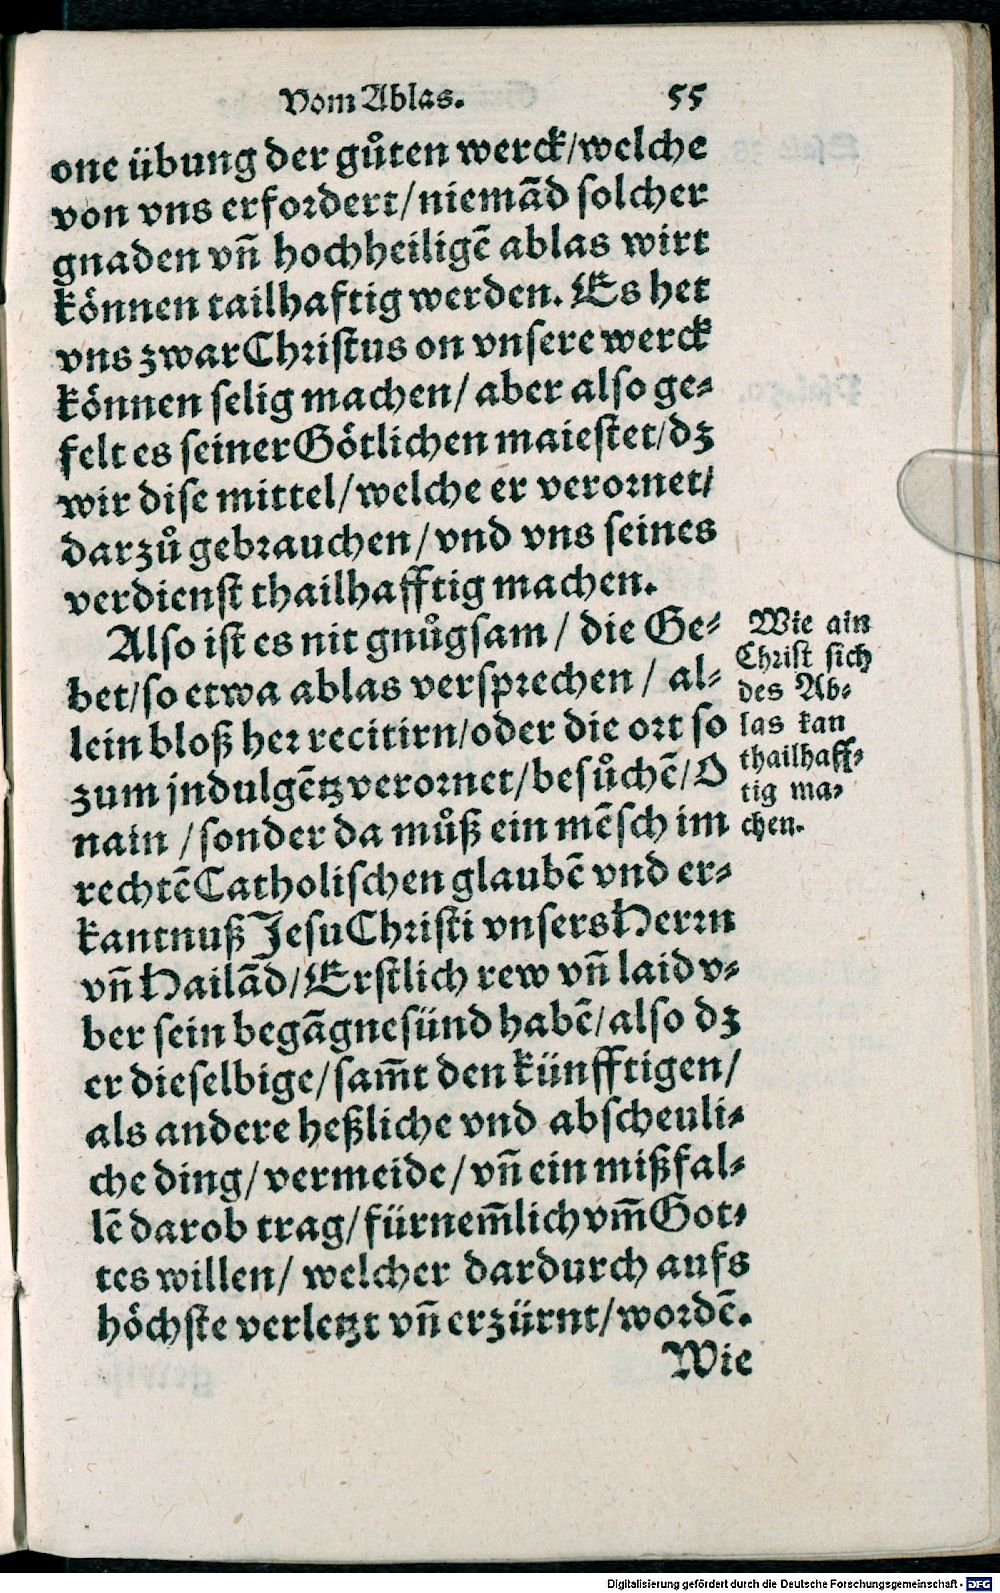 Vom Ablas. 55
one übung der gůten werck/welche
von vns erfordert/niemãd solcher
gnaden vñ hochheiligẽ ablas wirt
können tailhaftig werden. Es het
vns zwar Christus on vnsere werck
können selig machen/ aber also ge-
felt es seiner Götlichen maiestet/dz
wir dise mittel/welche er verornet/
darzů gebrauchen/vnd vns seines
verdienst thailhafftig machen.
Also ist es nit gnůgsam/ die Ge-
bet/so etwa ablas versprechen/ al-
lein bloß her recitirn/oder die ort so
zum jndulgẽtz verornet/besůchẽ/O
nain /sonder da můß ein mẽsch im
rechtẽ Catholischen glaubẽ vnd er-
kantnuß Jesu Christi vnsers Herrn
vñ Hailãd/Erstlich rew vñ laid v-
ber sein begãgne sünd habẽ/also dz
er dieselbige/sam̃t den künfftigen/
als andere heßliche vnd abscheuli-
che ding/vermeide/vñ ein mißfal-
lẽ darob trag/fürnem̃lich vm̃ Got-
tes willen/ welcher dardurch aufs
höchste verletzt vñ erzürnt/wordẽ.
Wie
Wie ain
Christ sich
des Ab-
las kan
thailhaff-
tig ma-
chen.
Digitalisierung gefördert durch die Deutsche Forschungsgemeinschaft - DFG